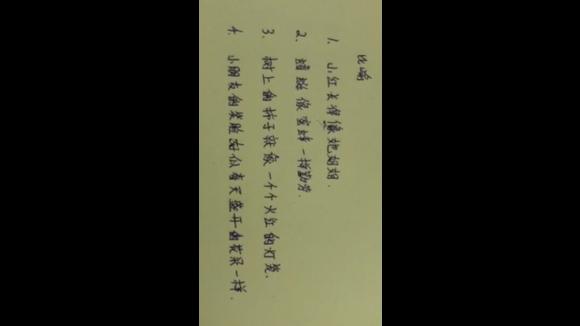 比喻
1. 小红长得像她妈妈.
2. 蜻蜓像蜜蜂一样勤劳.
3. 树上的柿子就像一个个火红的灯笼.
4. 小朋友的笑脸好似春天盛开的花朵一样.